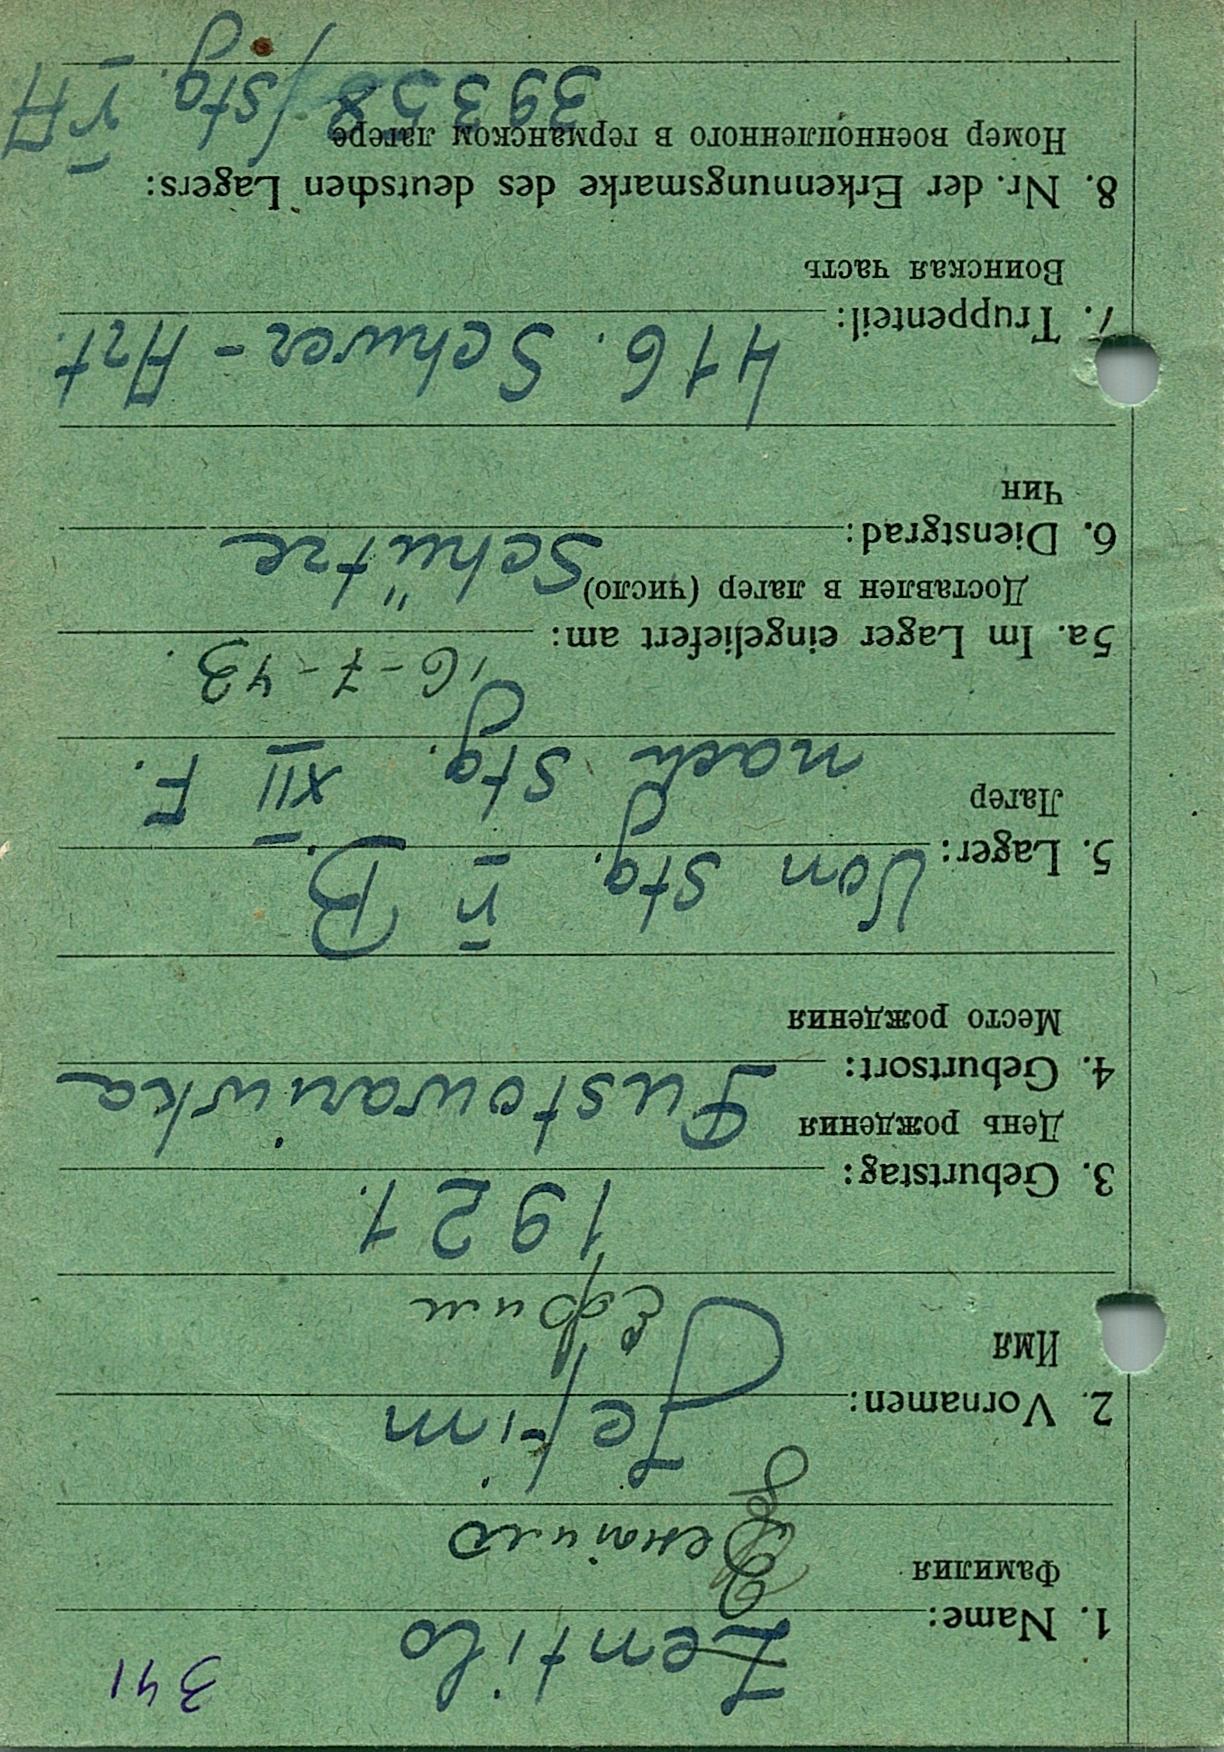 341
1. Name: Zentilo
Фамилия
2. Vornamen: Jefim
Имя Ефим
3. Geburtstag: 1921.
День рождения
4. Geburtsort: Pustowariwka
Место рождения
5. Lager: Von Stg. V B.
Лагер nach Stg. XII F.
5a. Im Lager eingeliefert am: 16-7-43.
Доставлен в лагер (число)
6. Dienstgrad: Schütze
Чин
7. Truppenteil: 416. Schwer-Art.
Воинская часть
8. Nr. der Erkennungsmarke des deutschen Lagers:
Номер военнопленного в германском лагере
39358/Stg. V A.